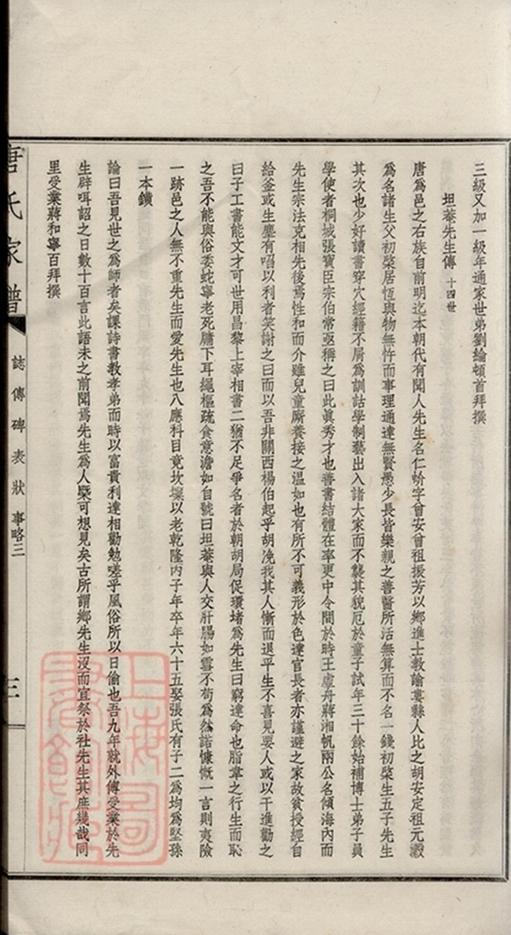 三級又加一級年通家世弟劉綸頓首拜撰
坦菴先生傳 十四世
唐爲邑之右族自前明迄本朝代有聞人先生名仁蚧字曾安曾祖振芳以鄉進士教諭婁縣人比之胡安定祖元
爲名諸生父初棨居恆與物無忤而事理通達無賢愚少長皆樂親之善醫所活無算而不名一錢初棨生五子先生
其次也少好讀書穿穴經籍不屑爲訓詁學制藝出入諸大家而不襲其貌厄於童子試年三十餘始補博士弟子員
學使者桐城張寶臣宗伯常亟稱之曰此眞秀才也善書結體在率更中令間於時王虛舟蔣湘帆兩公名傾海內而
先生宗法克相先後焉性和而介雖兒童廝養接之温如也有所不可義形於色達官長者亦謹避之家故貧授經自
給釜或生塵有啗以利者笑謝之曰而以吾非關西楊伯起乎胡凂我其人慚而退平生不喜見要人或以干進勸之
曰子工書能文才可世用昌黎上宰相書二猶不足爭名者於朝胡局促環堵爲先生曰窮達命也脂韋之行生而恥
之吾不能與俗委蛇寧老死牖下耳繩樞疏食意澹如自號曰坦菴與人交肝腸如雪不苟爲然諾慷慨一言則夷險
一跡邑之人無不重先生而愛先生也八應科目竟坎壈以老乾隆丙子年卒年六十五娶張氏有子二爲均爲堅孫
一本鐄
論曰吾見世之爲師者矣課詩書教孝弟而時以富貴利達相勸勉嗟乎風俗所以日偷也吾九年就外傅受業於先
生辟咡詔之日數十百言此語未之前聞焉先生爲人槩可想見矣古所謂鄉先生沒而宜祭於社先生其庶幾哉同
里受業蔣和寧百拜撰
唐氏家譜
誌傳碑表狀事略三
三